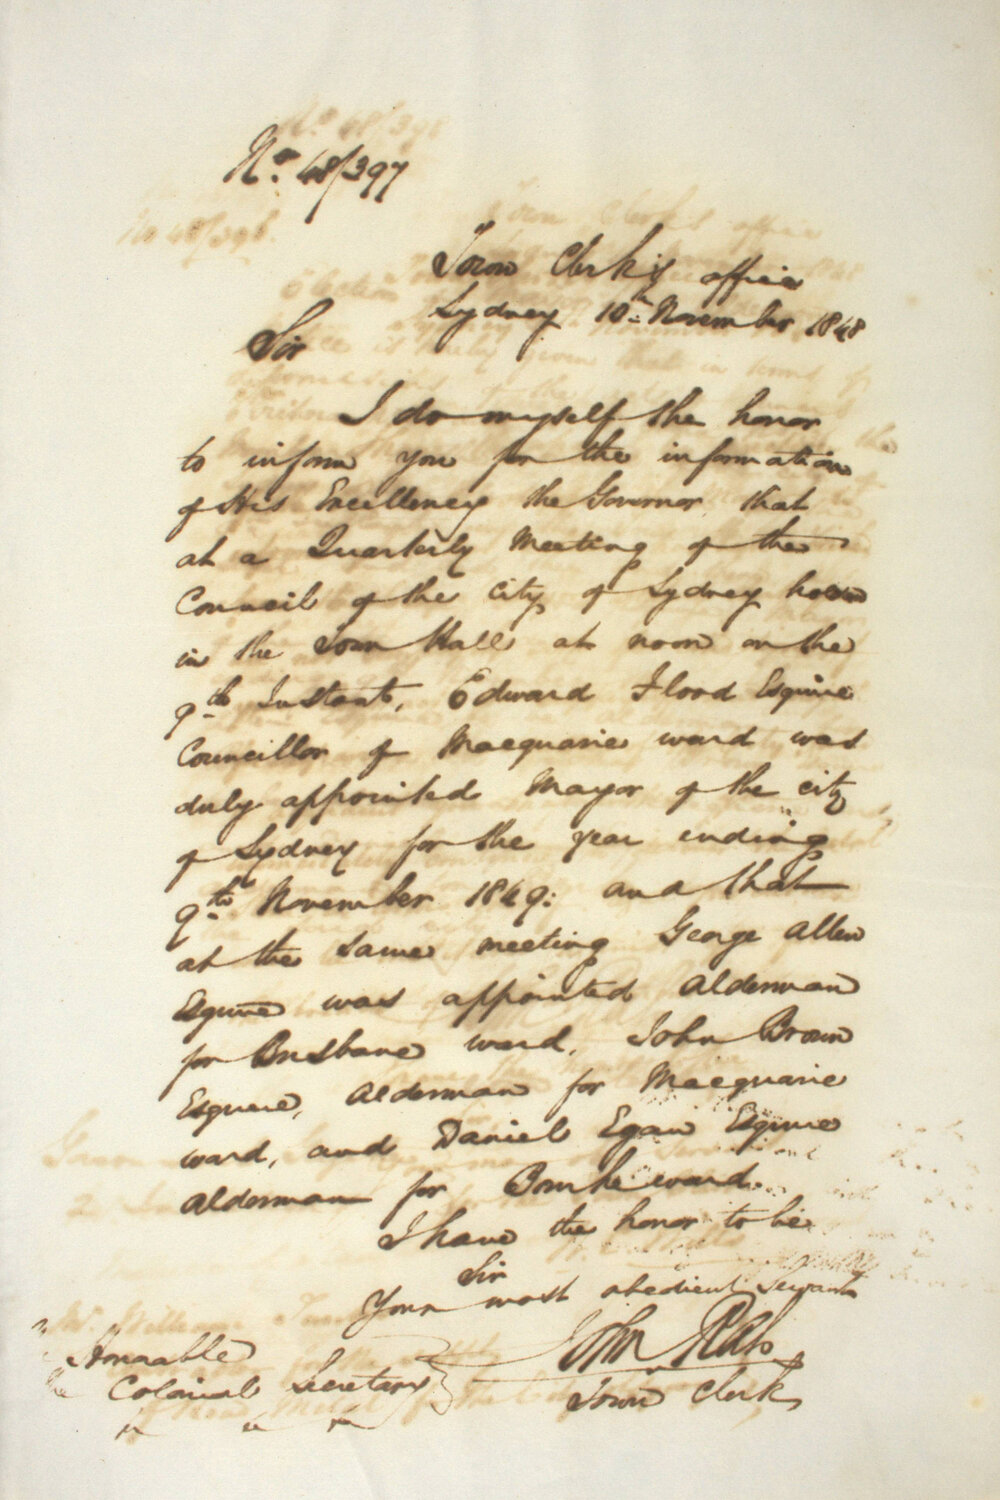 No. 48/397
Town Clerk's office
Sydney 10th November 1848
Sir
I do myself the honor
to inform you for the information
of His Excellency the Governor that
at a Quarterly Meeting of the
Council of the City of Sydney
in the Town Hall at noon on the
9th Instant, Edward Flood Esquire
Councillor of Macquarie ward was
duly appointed Mayor of the city
of Sydney for the year ending
9th November 1849: and that
at the same meeting George Allen
Esquire was appointed Alderman
for Brisbane ward, John Brown
Esquire, Alderman for Macquarie
ward, and Daniel Egan Esquire
Alderman for Bourke ward.
I have the honor to be
Sir
Your most obedient Servant
John Rae
Town Clerk
Honorable
the Colonial Secretary